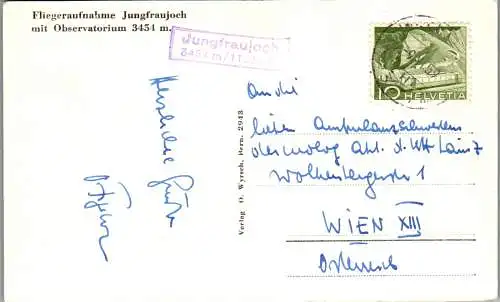 Fliegeraufnahme Jungfraujoch
mit Observatorium 3454 m.
Jungfraujoch
3454 m / 11
10 HELVETIA
Herzliche Grüße
Verlag O. Wyrsch, Bern. 2943
An die
lieben Ambulanzschwestern
dermolog Abt. d. KH Lainz
Wolkersbergenstr 1
WIEN XIII
Österreich